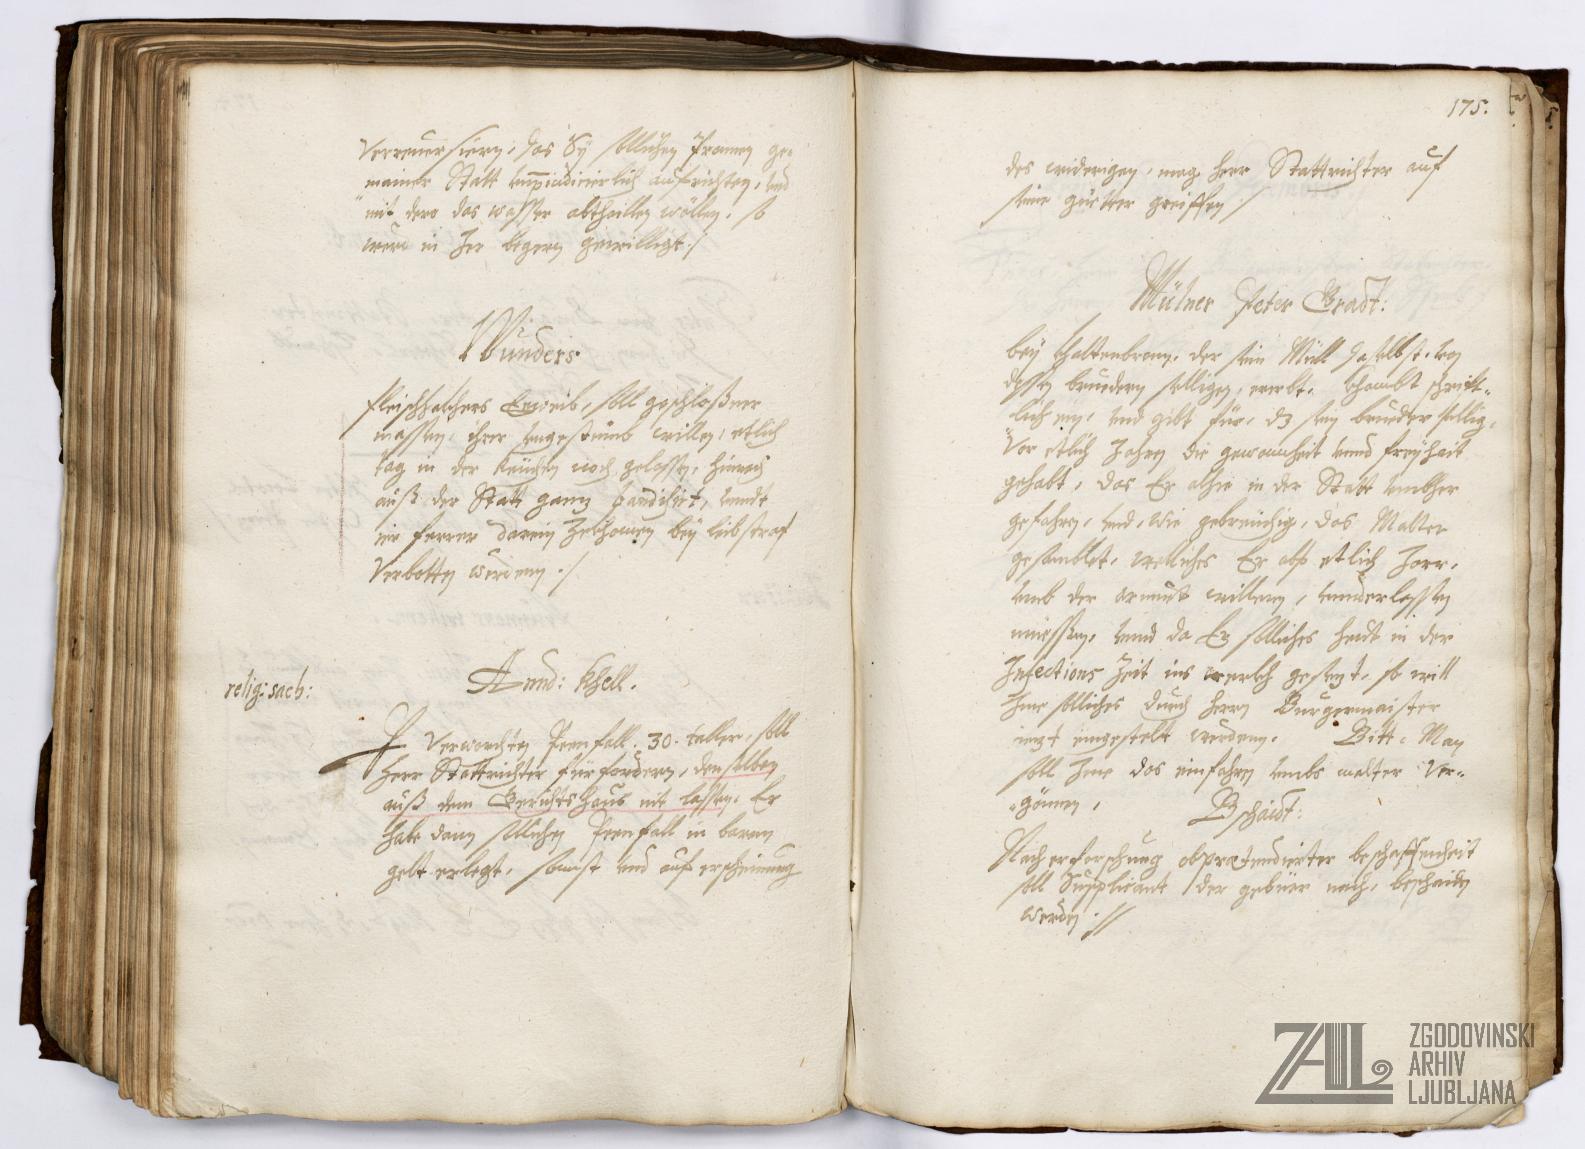 Verreuersiern, das Sÿ sollichen Pranen ge-
mainer Statt vnpraeiudicierlich aufrichten, vnd
mit dero das wasser abthaillen wöllen, so
werd in Ir begern gewilligt./
Wunders
fleischhakhers Eheweib, soll geschloßner
massen, ihrer vngestümb willen, etlich
tag in der Keichen noch gelassen, hienach
auß der Statt ganz bandisirt, vnndt
ir ferrer darein Zekhomen beÿ leibstraf
Verbotten werdenn ./
relig: sach:
Annd: Khell.
Verworchten Peenfall. 30. taller, soll
herr Stattrichter fürfordern, denselben
auß dem Gerichtshaus nit lassen, Er
habe dann sollichen Peenfall in barem
gelt erlegt, sonnst vnd auf erscheinung
175.
des widerigen, mag herr Stattrichter auf
seine güetter greiffen ./
Mülner Peter Gradt:
beÿ Khaltenbrunn, der sein Müll daselbst, von
dessen bruedern selligen, ererbt, khombt schrifft-
lich ein, vnd gibt für, dz sein brueder sellig,
Vor etlich Jahren die gewonheit vnnd freÿheit
gehabt, das Er alhie in der Statt vmbher
gefahren, vnd, wie gebreüchig, das Malter
gesamblet, welliches Er alß etlich Jarr,
vmb der armuet willenn, vnnderlassen
müessen, vnnd da Er solliches heut in der
Infections Zeit ins werkh gesetzt, so will
Ime solliches durch herrn Burgermaister
iezt eingestelt werdenn. Bitt. Man
soll Ime das einfahren vmbs malter Ver-
gönnen, Bschaidt:
Nach erforschung obpraetendierter beschaffenheit
soll Supplicant der gebüer nach, beschaiden
werden .//
ZAL
ZGODOVINSKI
ARHIV
LJUBLJANA